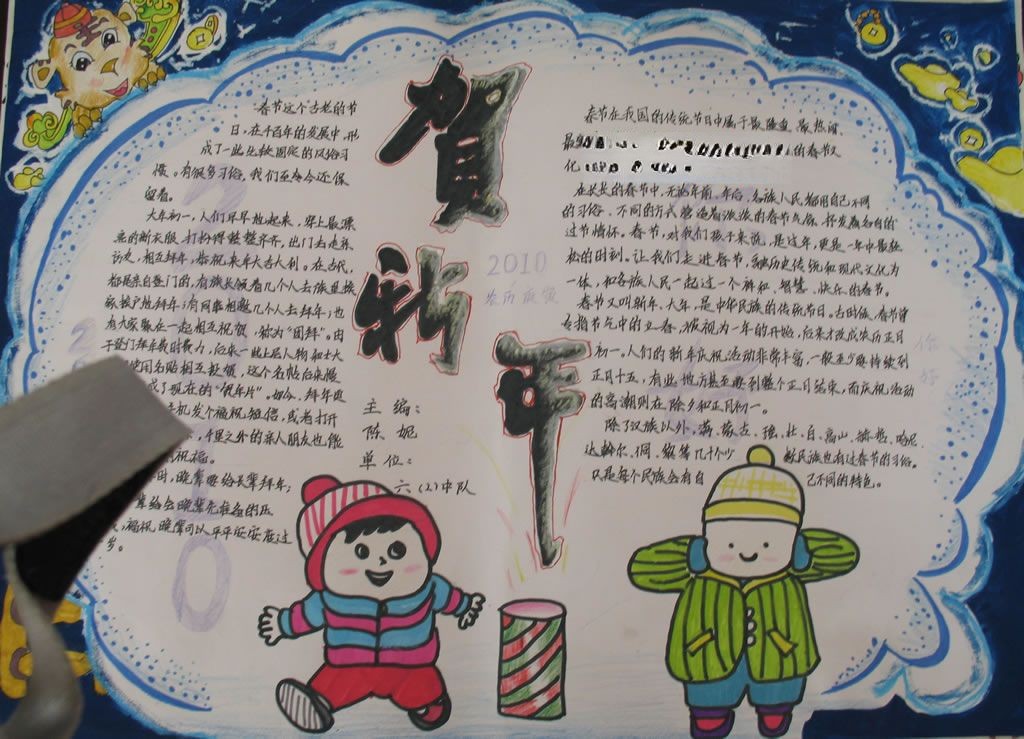 贺
新
年
春节这个古老的节
日,在千百年的发展中,形
成了一些比较固定的风俗习
惯。有很多习俗,我们至今还保
留着。
大年初一,人们早早起来,穿上最漂
亮的新衣服,打扮得整整齐齐,出门去走亲
访友,相互拜年,恭祝来年大吉大利。在古代,
都是亲自登门的,有族长领着几个人去挨
家挨户地拜年;有同事相邀几个人去拜年;也
有大家聚在一起相互祝贺,称为“团拜”。由
于登门拜年费时费力,后来一些上层人物和士大
使用名贴相互投领,这个名帖后来慢
成了现在的“贺年片”。如今,拜年更
手机发个福祝短信,或者打开
千里之外的亲人朋友也能
祝福。
晚辈要给长辈拜年;
辈给会晚辈先准备的压
福祝晚辈可以平平安安度过
岁。
主编:
陈妮
单位:
六(2)中队
2010
春节在我国的传统节日中属于最隆重、最热闹、
最
的春节文
化
在长长的春节中,无论年前、年后,各族人民都用自己不同
的习俗、不同的方式营造着浓浓的春节气氛,抒发着各自的
过节情怀。春节,对我们孩子来说,是过年,更是一年中最轻
松的时刻。让我们走进春节,融历史传统和现代文化为
一体,和各族人民一起过一个祥和、智慧、快乐的春节。
春节又叫新年、大年,是中华民族的传统节日。古时候,春节曾
专指节气中的立春,被视为一年的开始,后来才改成农历正月
初一。人们的新年庆祝活动非常丰富,一般至少要持续到
正月十五,有些地方甚至要到整个正月结束,而庆祝活动
的高潮则在除夕和正月初一。
除了汉族以外,满、蒙古、瑶、壮、白、高山、赫哲、哈尼
达斡尔、侗、黎等几十个少数民族也有过春节的习俗。
只是每个民族会有自己不同的特色。
你
好